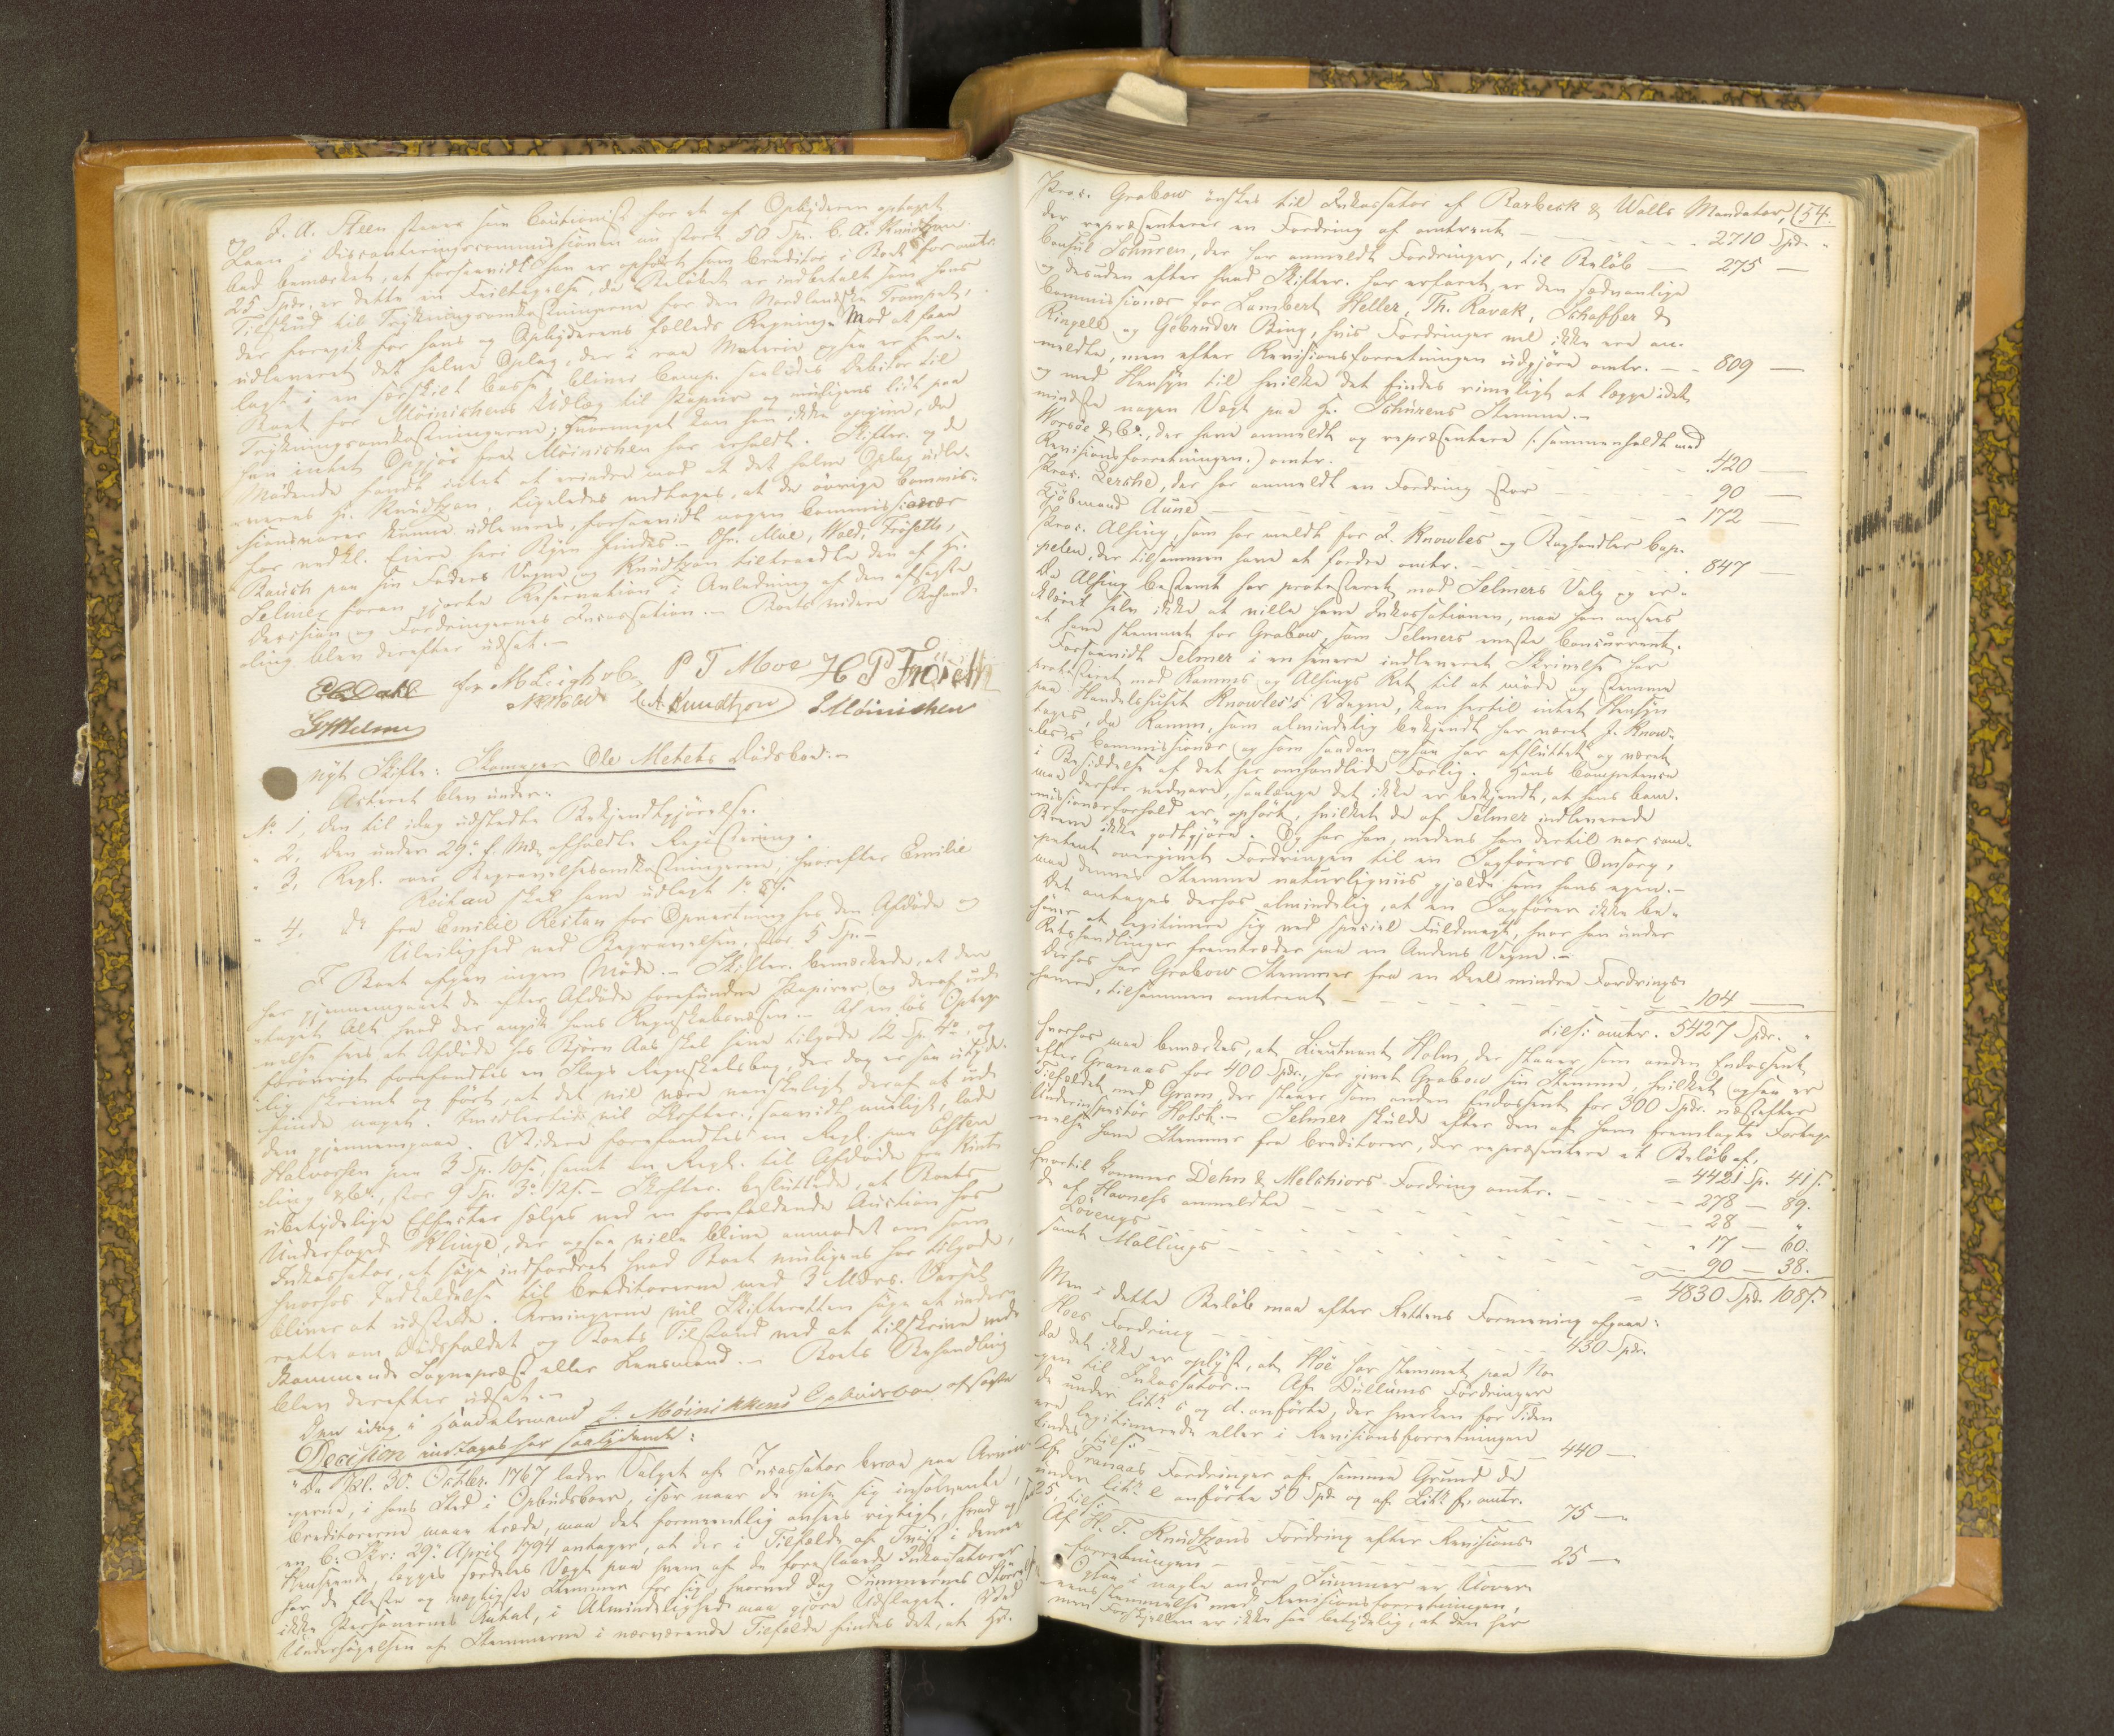 og J. A. Steen staar som Cautionist for et af Opbyderen optaget
Laan i Disconteringscommissionen nu stort 50 Spd. C. A. Knudtzon
bad bemærket, at forsaavidt han er opført som Creditor i Boet for omtr.
25 Spdr. er dette en Feiltagelse, da Beløbet er indbetalt som hans
Tilskud til Trykningsomkostningerne for den Nordlandske Trompet,
der foregik for hans og Opbyderens fælleds Regning. Mod at faae
udleveret det halve Oplag, der i raa Materie ogsaa er hen-
lagt i en særskilt Casse, bliver Comp. saaledes Debitor til
Boet for Møinichens Udlæg til Papiir og muligens lidt paa
Trykningsomkostningerne; hvormeget kan han ikke opgive, da
han intet Opgjør fra Møinichen har erholdt. Skifter. og de
Mødende fandt intet at erindre mod at det halve Oplag udle-
veres Hr. Knudtzon. Ligeledes vedtoges, at de øvrige Commis-
sionsvarer kunne udleveres, forsaavidt nogen Commissionær
for vedkl. Eiere her i Byen findes. – Chr. Moe, Wold, Frøseth,
Bauch paa sin Faders Vegne og Knudtzon tiltraadte den af Hr.
Selmer foran gjorte Reservation i Anledning af den afsagte
Decision og Fordringernes Incassation. – Boets videre Behand-
ling blev derefter udsat. –
C Dahl for M Leigh & C P T Moe H P Frøseth
N Wold C. A. Knudtzon J Møinichen
G Selmer
Nyt Skifte: Skomager Ole Metets Dødsboe. –
Acteret blev under:
No 1, den til idag udstedte Bekjendtgjørelse.
" 2, den under 29e f. Md. afholdte Registrering.
" 3, Regl. over Begravelsesomkostningerne, hvorefter Emilie
Reitan skal have udlagt
" 4. do fra Emilie Reitan for Opvartning hos den Afdøde og
Uleilighed ved Begravelsen, stor 5 Sp. –
I Boet afgav ingen Møde. – Skifter. bemærkede, at den
har gjennemgaaet de efter Afdøde forefundne Papirer og deraf ud-
taget Alt hvad der angik hans Regnskabsvæsen. – Af en løs Opteg-
nelse sees at Afdøde hos Bjørn Aas skal have tilgode 12 Sp. 4 , og
forøvrigt forefandtes en Slags Regnskabsbog, der dog er saa utyde-
lig skrevet og ført, at det vil være vanskeligt deraf at ud-
finde noget. Imidlertid vil Skifter., saavidt muligt, lade
den gjennemgaae. Videre forefandtes en Regl. paa
Halvorsen paa 3 Sp. 10 s, samt en Regl. til Afdøde fra
ling & Co., stor 9 Sp. 3 12 s. – Skifter. besluttede, at Boets
ubetydelige Effecter sælges ved en foreholdende Auction hos
Underfoged Klinge, der ogsaa vilde blive anmodet om som
Inkassator, at søge indfordret hvad Boet muligens har tilgode,
hvorhos Indkaldelse til Creditorerne med 3 Mdrs. Varsel
bliver at udstede. Arvingerne vil Skifteretten søge at under-
rette om Dødsfaldet og Boets Tilstand ved at tilskrive ved-
kommende Sognepræst eller Lensmand. – Boets Behandling
blev derefter udsat. –
Den idag i Handelsmand J. Møinikkens Opbudsboe afsagte
Decision indtages her saalydende:
"Da Pl. 30. Octbr. 1767 lader Valget af Incassator beroe paa Arvin-
gerne, i hans Sted i Opbudsboer, især naar de vise sig insolvente,
Creditorerne maae træde, maa det formeentlig ansees rigtigt, hvad ogsaa
en C: Skr: 29e April 1794 antager, at der i Tilfælde af Tvist i denne
Henseende, lægges fordeels Vægt paa hvem af de foreslaaede Inkassatorer
har de fleste og vægtigste Stemmer for sig, hvorved dog Summernes Størrelse
ikke Personernes Antal, i Almindelighed maa gjøre Udslaget. Ved
Undersøgelsen af Stemmerne i nærværende Tilfælde findes det, at Hr.
Proc. Grabow ønskes til Inkassator af Rasbeck & Walls Mandator, 154.
der repræsenterer en Fordring af omtrent – – 2710 Spdr. "
Consul Schuren, der har anmeldt Fordringer, til Beløb – 275 –
og desuden efter hvad Skifter. har erfaret, er den sædvanlige
Commissionær for Lambert Heller, Th. Ravak, Schaffer &
Ringell og Gebruder Bing, hvis Fordringer vel ikke ere an-
meldte, men efter Revisionsforretningen udgjøre omtr. – – 809 –
og med Hensyn til hvilke det findes rimeligt at lægge idet-
mindste nogen Vægt paa Hr. Schurens Stemme. –
Worsøe & Co., der have anmeldt og repræsentere (sammenholdt med
Revisionsforretningen) omtr. – – 420 –
Proc. Lerche, der har anmeldt en Fordring stor – – 90 –
Kjøbmand Aune – – 172 –
Proc. Alsing, som har meldt for J. Knowles og Boghandler Cap-
pelen, der tilsammen have at fordre omtr. – – 847 –
Da Alsing bestemt har protesteret mod Selmers Valg og er-
klæret selv ikke at ville have Inkassationen, maa han ansees
at have stemmet for Grabow, som Selmers eneste Concurrent.
Forsaavidt Selmer i en senere indleveret Skrivelse har
protesteret mod Ramms og Alsings Ret til at møde og stemme
paa Handelshuset Knowles's Vegne, kan hertil intet Hensyn
tages, da Ramm, som almindelig bekjendt har været J. Know-
les's Commissionær og som saadan ogsaa har afsluttet og været
i Besiddelse af det her omhandlede Forlig. Hans Competence
maa derfor vedvare, saalænge det ikke er bekjendt, at hans Com-
missionsforhold er ophørt, hvilket de af Selmer indleverede
Breve ikke godtgjøre. Og har han, medens han dertil var com-
petent overgivet Fordringen til en Sagførers Omsorg,
maa dennes Stemme naturligviis gjelde som hans egen. –
Det antages derhos almindelig, at en Sagfører ikke be-
høver at legitimere sig ved special Fuldmagt, hvor han under
Retshandlinger fremtræder paa en Andens Vegne. –
Derhos har Grabow Stemmer fra en Deel mindre Fordrings-
havere, tilsammen omtrent – – 104 –
tils: omtr. 5427 Spdr. "
hvorhos maa bemærkes, at Lieutnant Holm, der staaer som anden Endossent
efter Granaas for 400 Spdr., har givet Grabow sin Stemme, hvilket ogsaa er
Tilfældet med Gram, der staaer som anden Endossent for 300 Spdr. næstefter
Underinspektør Holst. – Selmer skulde efter den af ham fremlagte Forteg-
nelse have Stemmer fra Creditorer, der repræsentere et Beløb af:
= 4421 Sp. 41 s.
hvortil kommer Dehn & Melchiors Fordring omtr. – – 278 – 89.
de af Havness anmeldte – – 28 – "
Lövengs – – 17 – 60.
samt Mallings – – 90 – 38.
= 4830 Spd. 108 s.
Men i dette Beløb maa efter Rettens Formening afgaae:
Høes Fordring – – 430 Spdr.
da det ikke er oplyst, at Høe har stemmet paa No-
gen til Inkassator. – Af Dullums Fordringer
de under litr c og d. anførte, der hverken for Tiden
ere legitimerede eller i Revisionsforretningen
findes, tils: – – 440 –
Af Granaas Fordringer af samme Grund de
under litr e anførte 50 Spd. og af Litr f. omtr.
25 tils: – – 75 –
Af H. T. Knudtzons Fordring efter Revisions-
forretningen – – 25 –
Ogsaa i nogle andre Summer er Uover-
eensstemmelse med Revisionsforretningen,
men Forskjellen er ikke saa betydelig, at den her